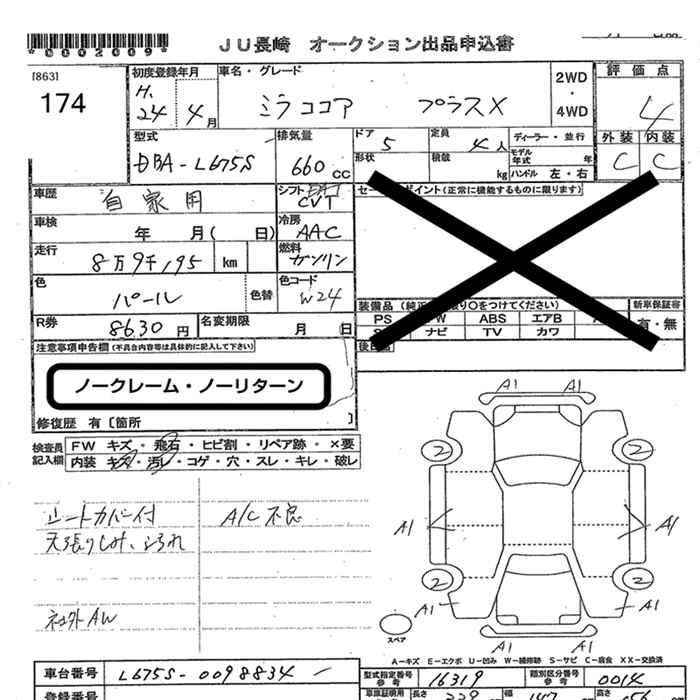 *0002009*
JU長崎 オークション出品申込書
[863]
174
初度登録年月
H.
24 4月
車名・グレード
ミラココア プラスX
2WD
・
4WD
評価点
4
外装 内装
C C
型式
DBA-L675S
排気量
660cc
ドア
5
形状
定員
4人
積載
kg
ディーラー・並行
モデル
年式
年
ハンドル 左・右
車歴
自家用
シフト
CVT
車検
年 月(日)
冷房
AAC
走行
8万9千195 km
燃料
ガソリン
色
パール
色替
色コード
W24
R券
8630円
名変期限
月 日
(正常に機能するものに限ります)
装備品
ABS
エアB
ナビ
TV
カワ
新車保証書
有・無
注意事項申告欄(不具合内容等は具体的に記入して下さい)
ノークレーム・ノーリターン
修復歴 有〔箇所 〕
検査員
記入欄
FW キズ・飛石・ヒビ割・リペア跡・×要
内装 キズ・汚レ・コゲ・穴・スレ・キレ・破レ
シートカバー付
A/C不良
天張りしみ、よごれ
社外AW
A1 A1
2 2
A1 A1
2 2
A1 A1
A1 A1
スペア
A-キズ E-エクボ U-凹み W-補修跡 S-サビ C-腐食 XX-交換済
車台番号
L675S-0098834
型式指定番号
参考
16319
類別区分番号
参考
0014
登録番号
長さ
幅
高さ